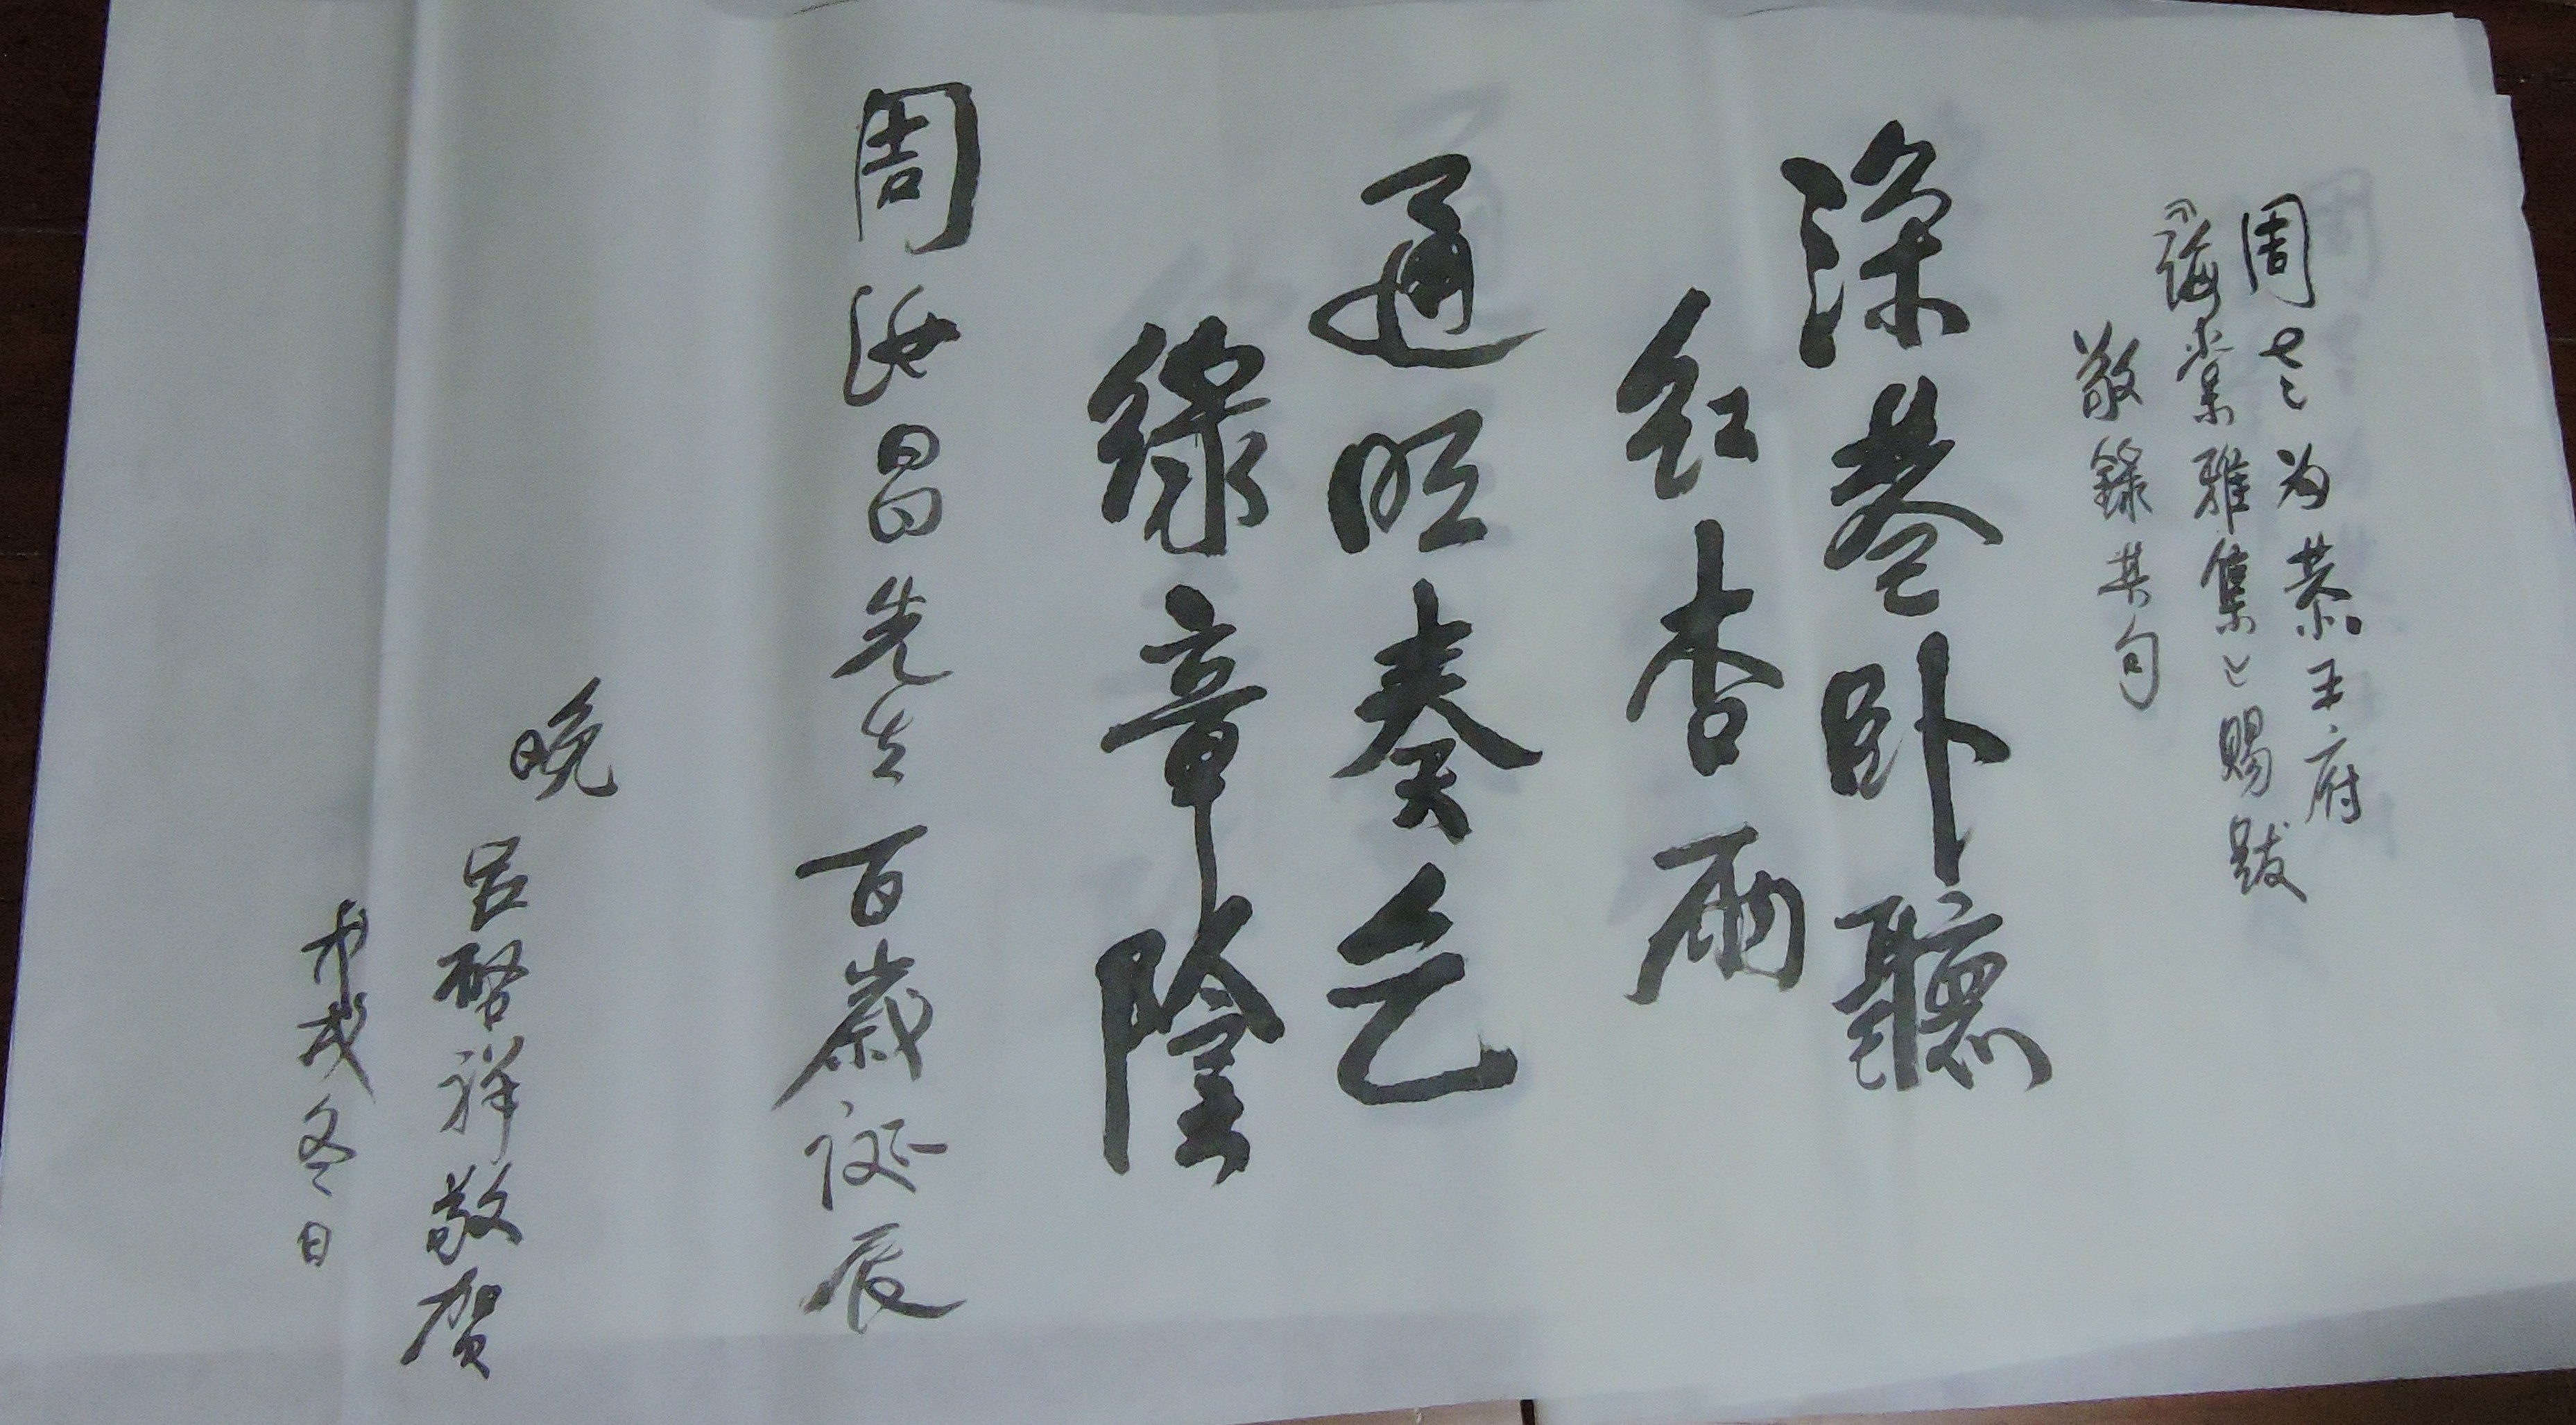 周老为恭王府
《海棠雅集》赐跋
敬錄其句
深巷卧聽
紅杏雨
通明奏乞
綠章陰
周汝昌先生百歲诞辰
晚
吕啓祥敬贺
戊戌冬日